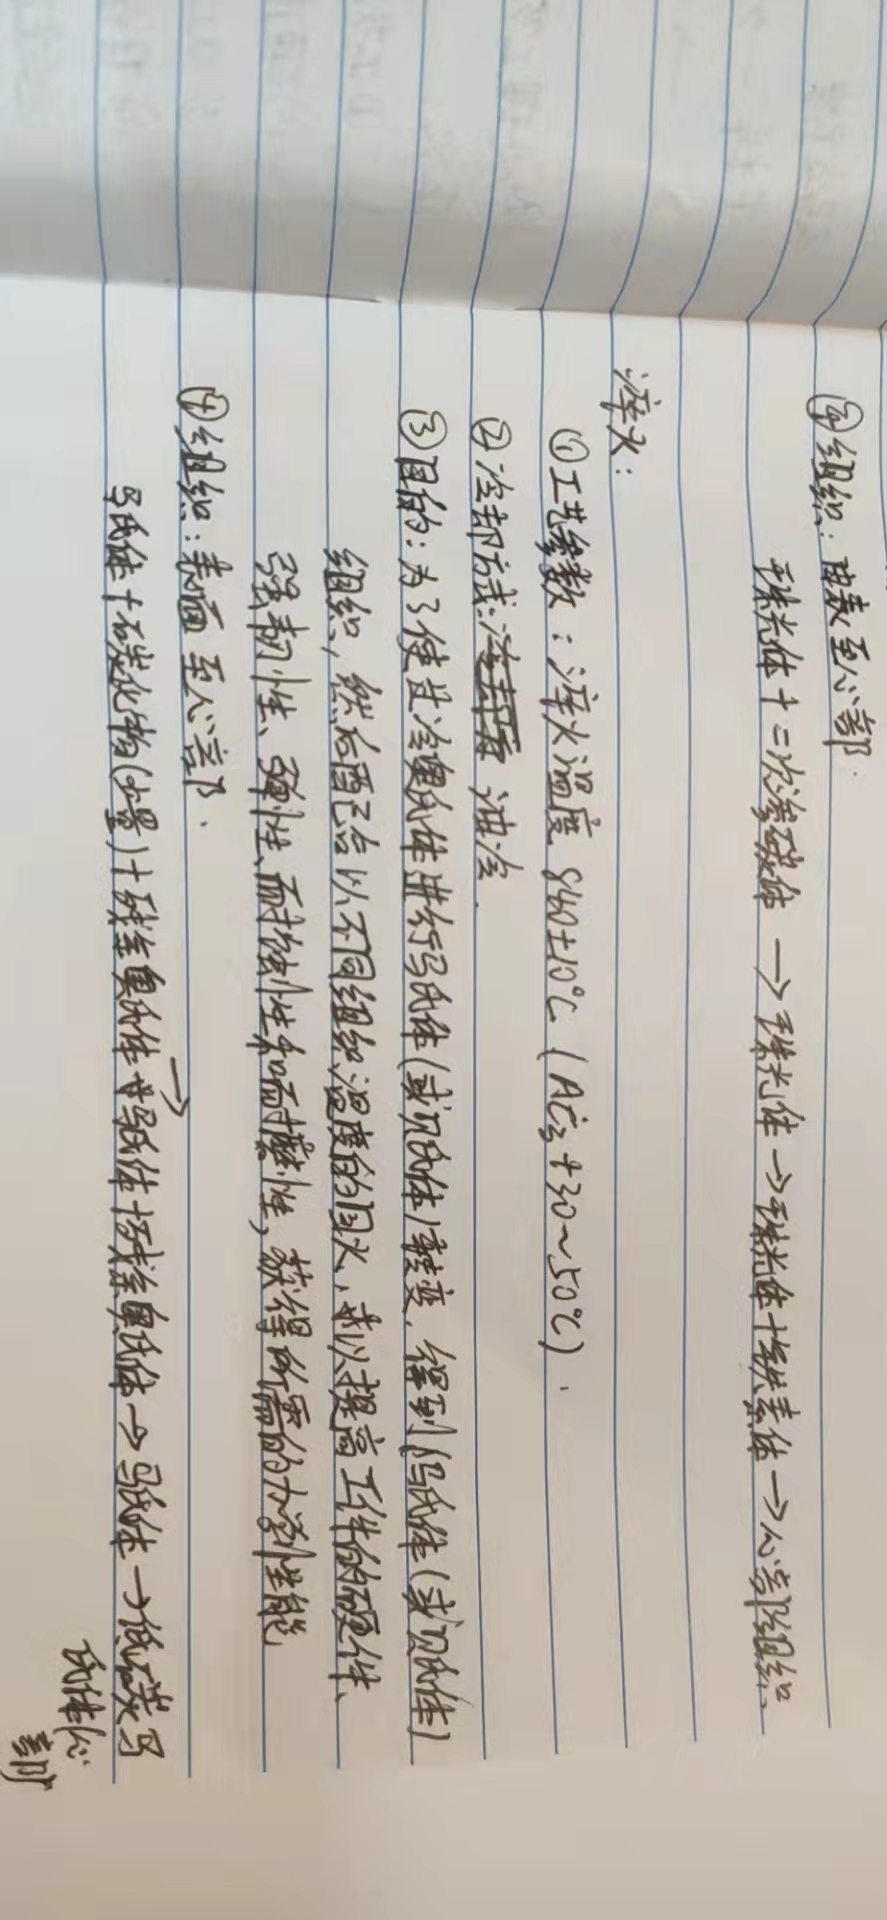 ④组织：由表至心部.
珠光体+二次渗碳体→珠光体→珠光体+铁素体→心部组织
淬火：
①工艺参数：淬火温度 840±10℃（AC₃+30~50℃）.
②冷却方式： 油冷.
③目的：为了使过冷奥氏体进行马氏体（或贝氏体）转变，得到马氏体（或贝氏体）
组织，然后配合以不同组织温度的回火，求以提高工件的硬件、
强韧性、弹性、耐蚀性和耐磨性，获得所需的力学性能
④组织：表面至心部.
马氏体+碳化物（少量）+残余奥氏体→马氏体+残余奥氏体→马氏体→低碳马
氏体心
部